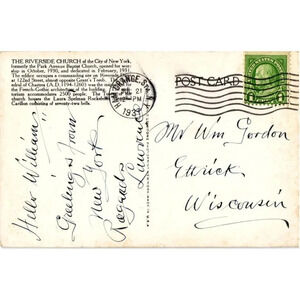 THE RIVERSIDE CHURCH of the City of New York,
formerly the Park Avenue Baptist Church, opened for wor-
ship in October, 1930, and dedicated in February, 1931.
The edifice occupies a commanding site on Riverside
at 122nd Street, almost opposite Grant's Tomb.
of Chartres (A.D. 1194-1260) was the
the French-Gothic architecture of the building
nations accommodate 2500 people. The
church houses the Laura Spelman Rockefeller
Carillon consisting of seventy-two bells.
GRANGE STA. N.Y.
21
12 PM
193
POST CARD
Hello William
Greetings from
New York
Regards
Mr Wm Gordon
Ettrick
Wisconsin